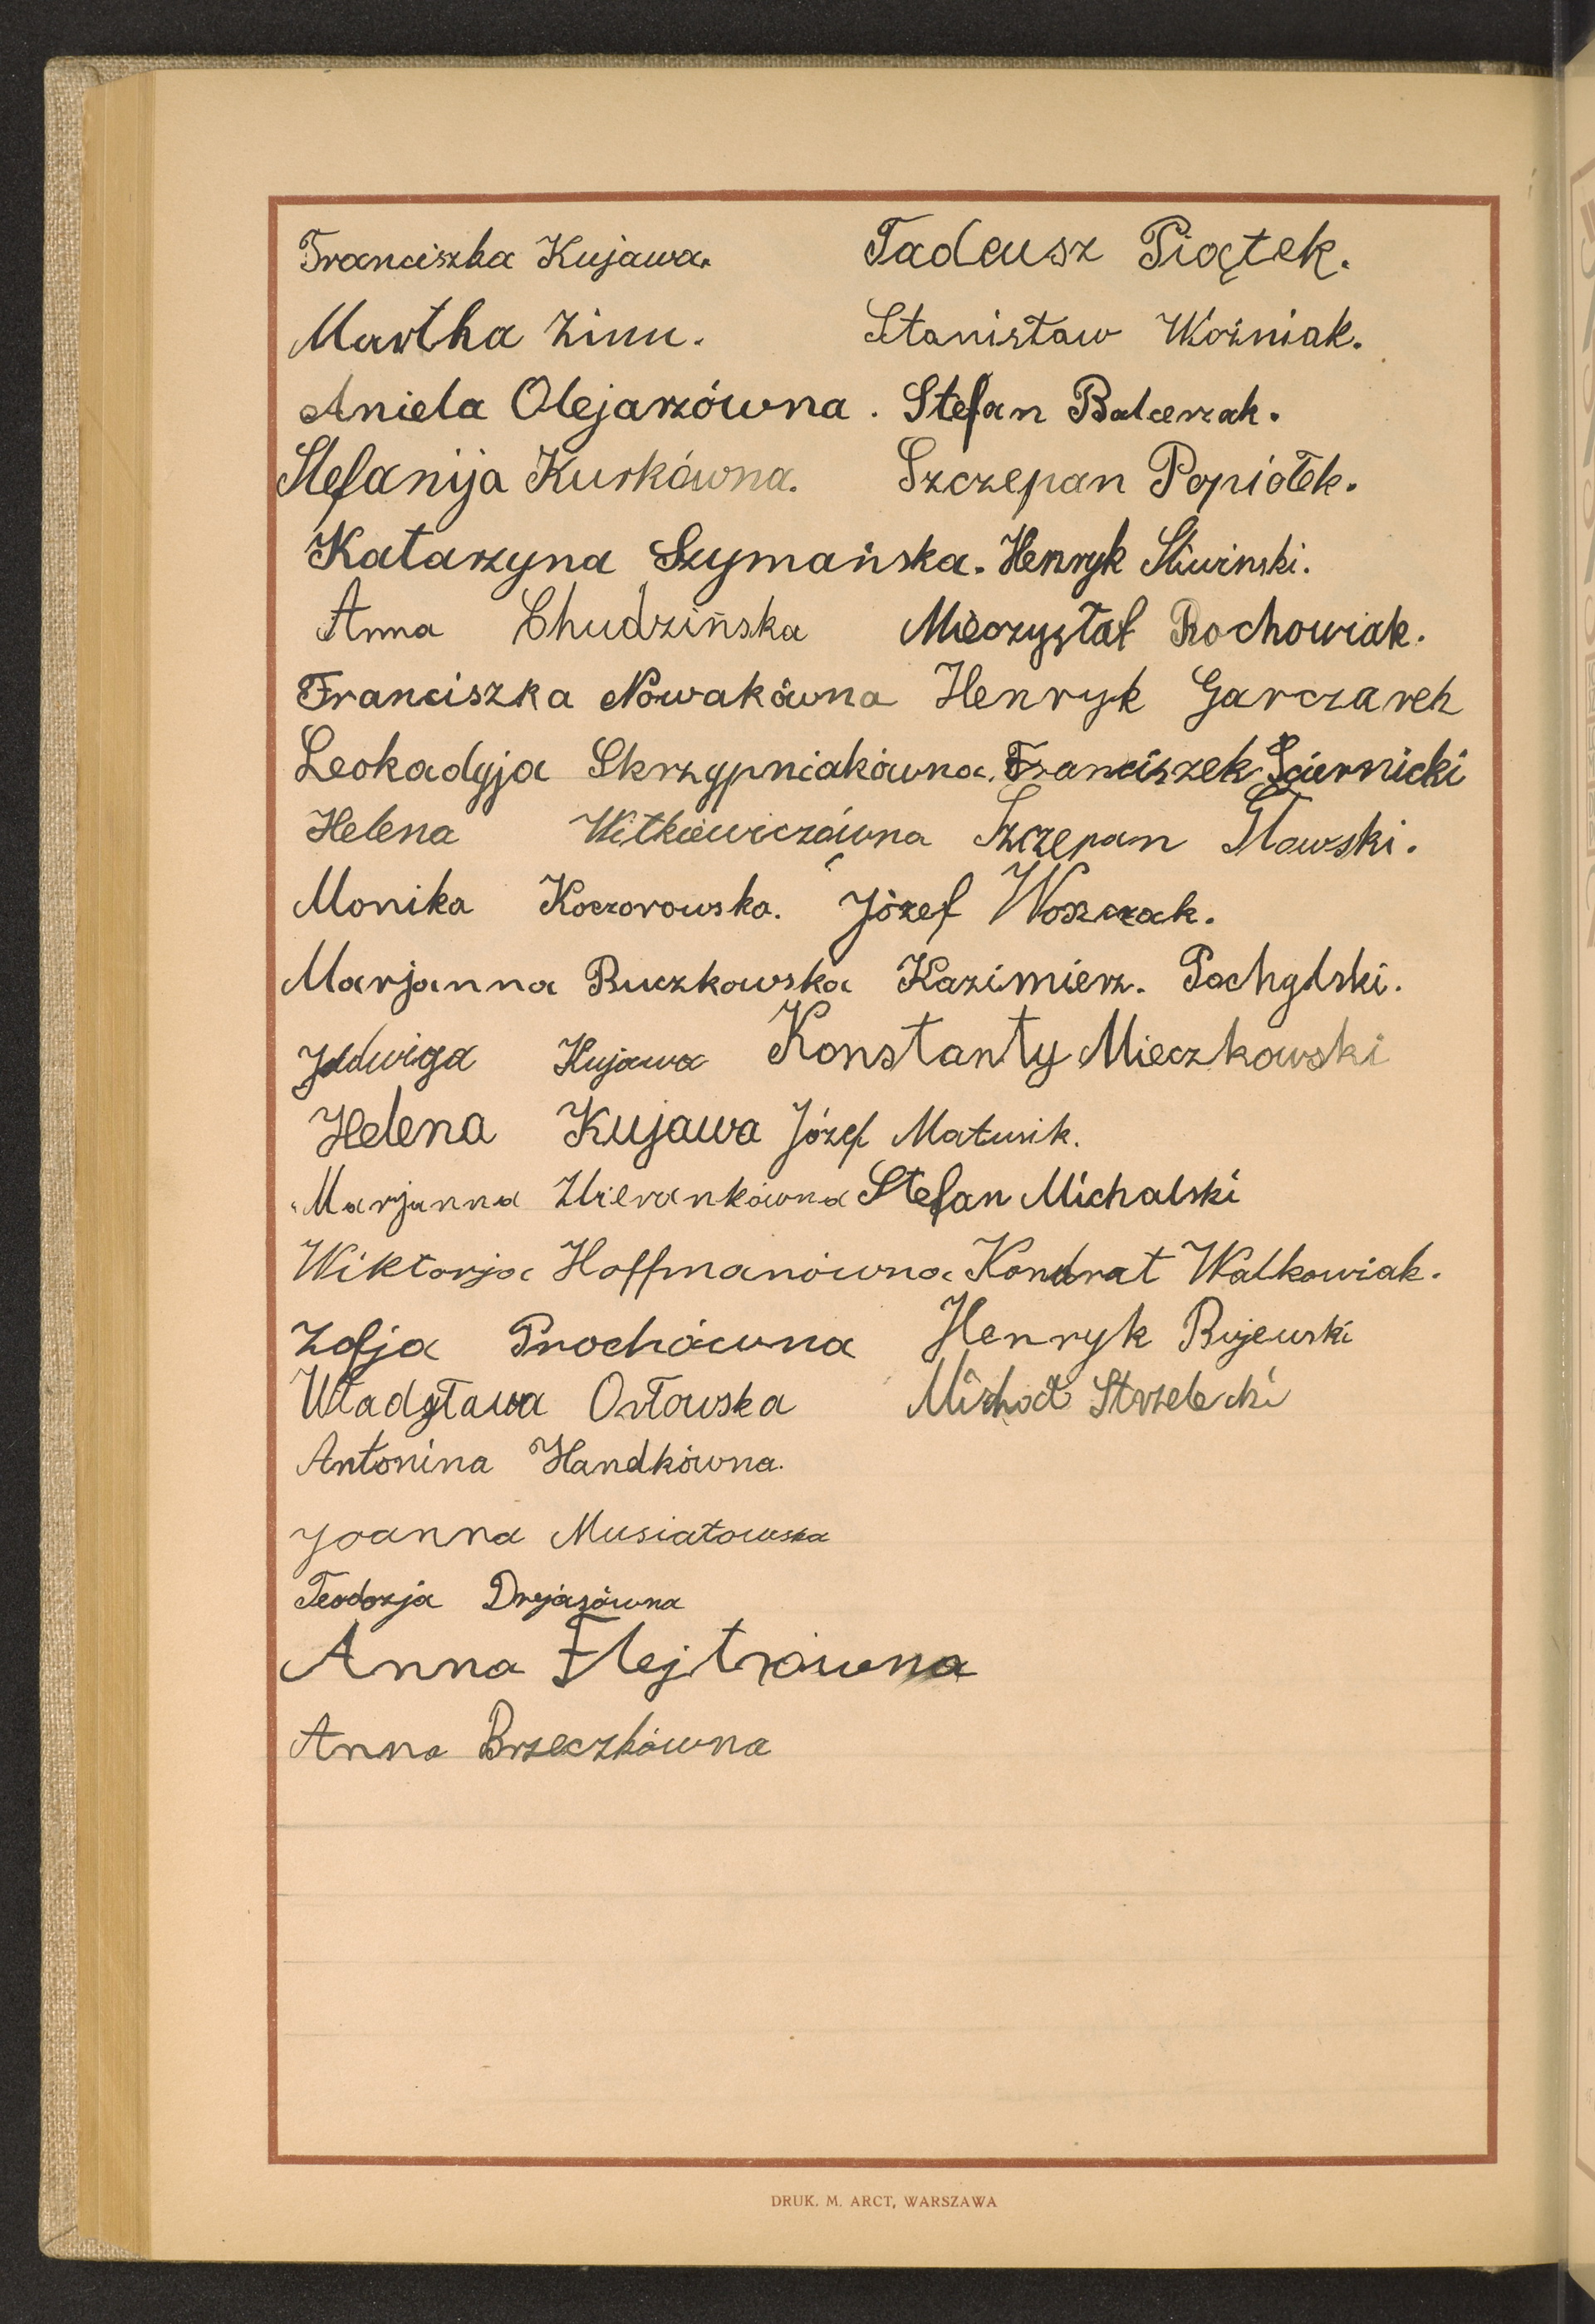 Franciszka Kujawa. Tadeusz Piątek.
Martha Zinn. Stanisław Woźniak.
Aniela Olejarzówna. Stefan Balcerzak.
Stefanija Kurkówna. Szczepan Popiołek.
Katarzyna Szymańska. Henryk Śliwinski.
Anna Chudzińska Mieczysłaf Rochowiak.
Franciszka Nowakówna Henryk Garczarek
Leokadyja Skrzypniakówna. Franciszek Sciernicki
Helena Witkiewiczówna Szczepan Sławski.
Monika Koczorowska. Józef Woszczak.
Marjanna Buczkowska Kazimierz. Pochylski.
Jadwiga Kujawa Konstanty Mieczkowski
Helena Kujawa Józef Matusik.
Marjanna Stefan Michalski
Wiktorja Hoffmanówna Kondrat Walkowiak.
Zofja Prochówna Henryk Bujewski
Władysława Orłowska Michał Strzelecki
Antonina Handkówna.
Joanna Musiałowska
Teodozja Drejasówna
Anna Flejtrówna
Anna Brzeczkówna
DRUK. M. ARCT, WARSZAWA